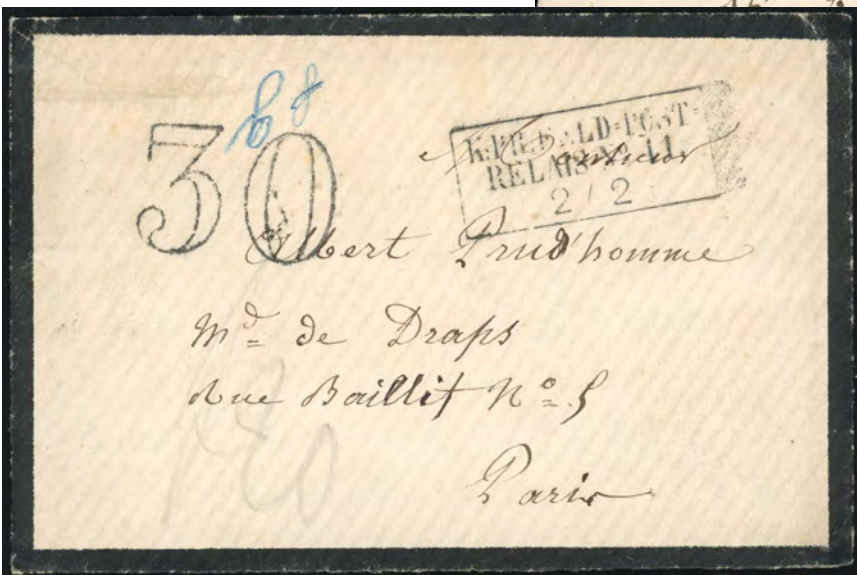 30
K:PR:FELD=POST=
RELAIS No 11.
2 / 2
Monsieur
Albert Prud'homme
Md de Draps
Rue Baillif No 5
Paris